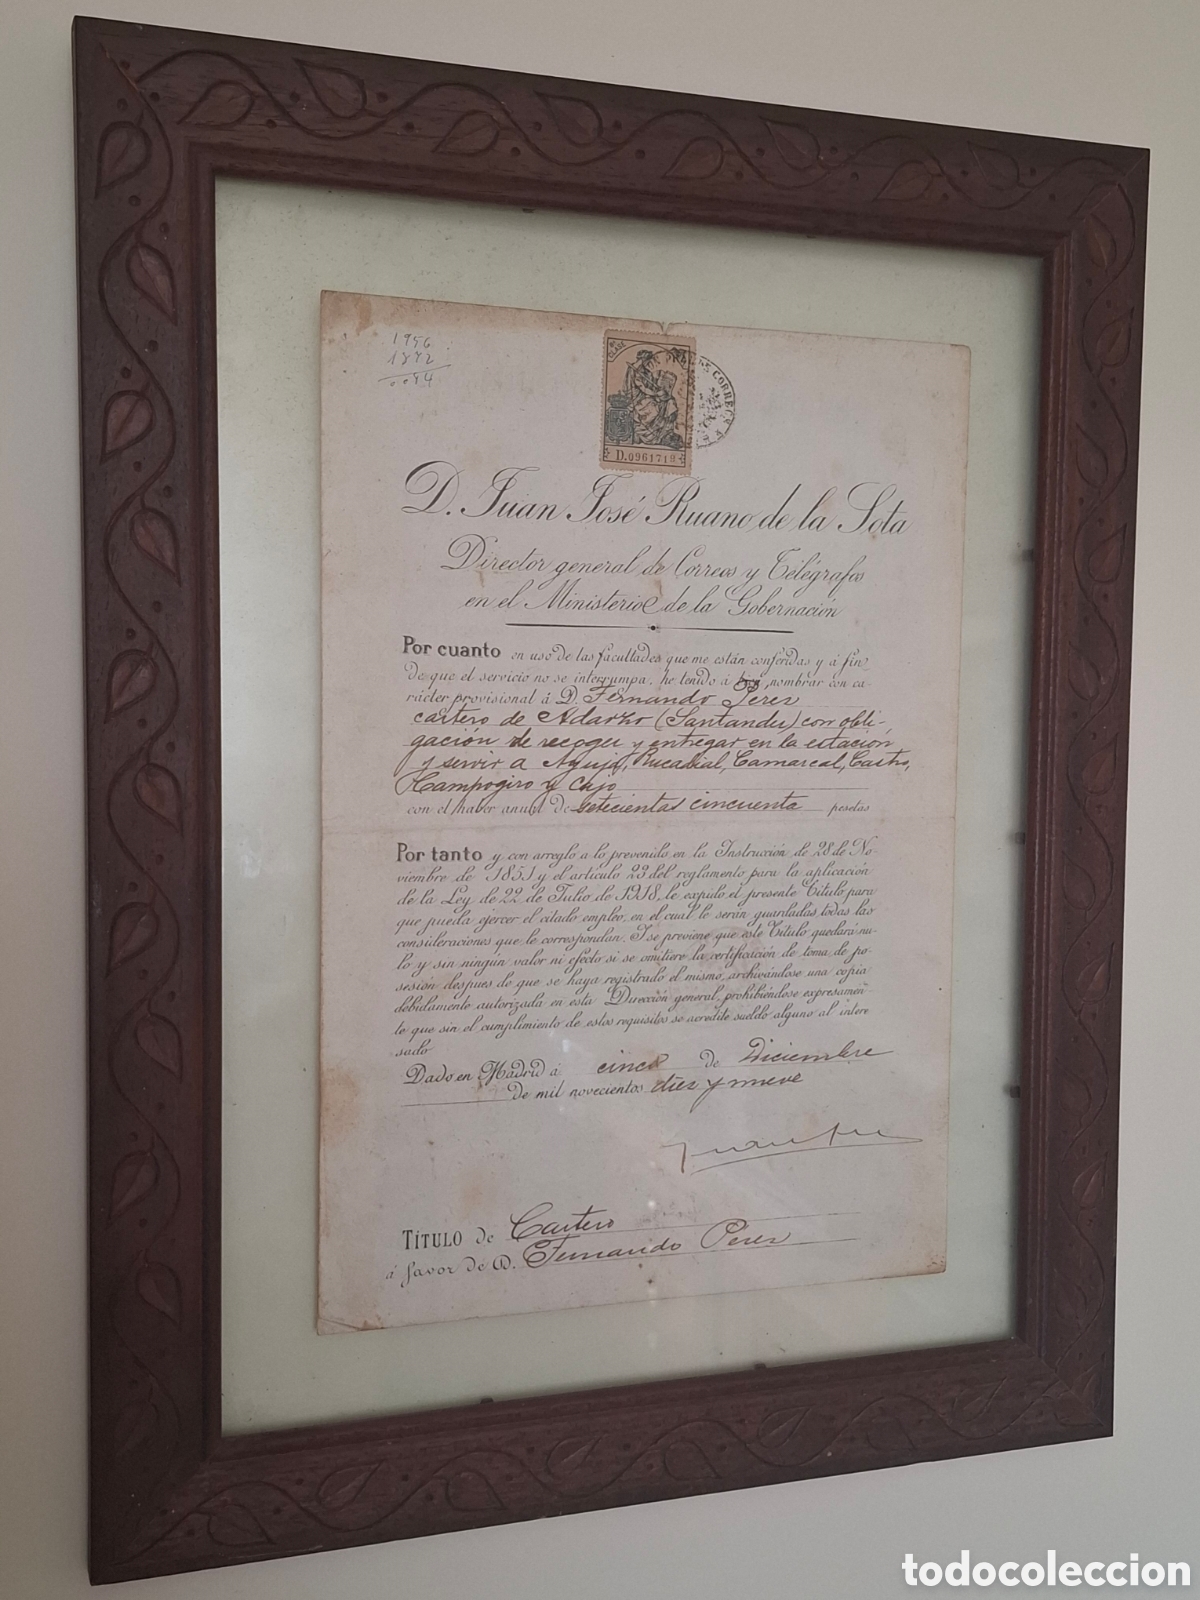 1956
1872
0084
CLASE
CORREOS
D.0961719
D. Juan José Ruano de la Sota
Director general de Correos y Telégrafos
en el Ministerio de la Gobernación
Por cuanto en uso de las facultades que me están conferidas y á fin
de que el servicio no se interrumpa, he tenido á nombrar con ca-
rácter provisional á D. Fernando Perez
cartero de Adarzo (Santander) con obli-
gación de recoger y entregar en la estación
y servir a Aguja, Rucandial, Camarcal, Castro,
Campogiro y Cajo
con el haber anual de setecientas cincuenta pesetas
Por tanto y con arreglo a lo prevenido en la Instrucción de 28 de No-
viembre de 1851 y el artículo 29 del reglamento para la aplicación
de la Ley de 22 de Julio de 1918, le expido el presente Título para
que pueda ejercer el citado empleo, en el cual le serán guardadas todas las
consideraciones que le correspondan. Y se previene que este Título quedará nu-
lo y sin ningún valor ni efecto si se omitiere la certificación de toma de po-
sesión despues de que se haya registrado el mismo, archivándose una copia
debidamente autorizada en esta Dirección general, prohibiéndose expresamen-
te que sin el cumplimiento de estos requisitos se acredite sueldo alguno al intere
sado
Dado en Madrid á cinco de Diciembre
de mil novecientos diez y nueve
TÍTULO de Cartero
á favor de D. Fernando Pérez
todocoleccion